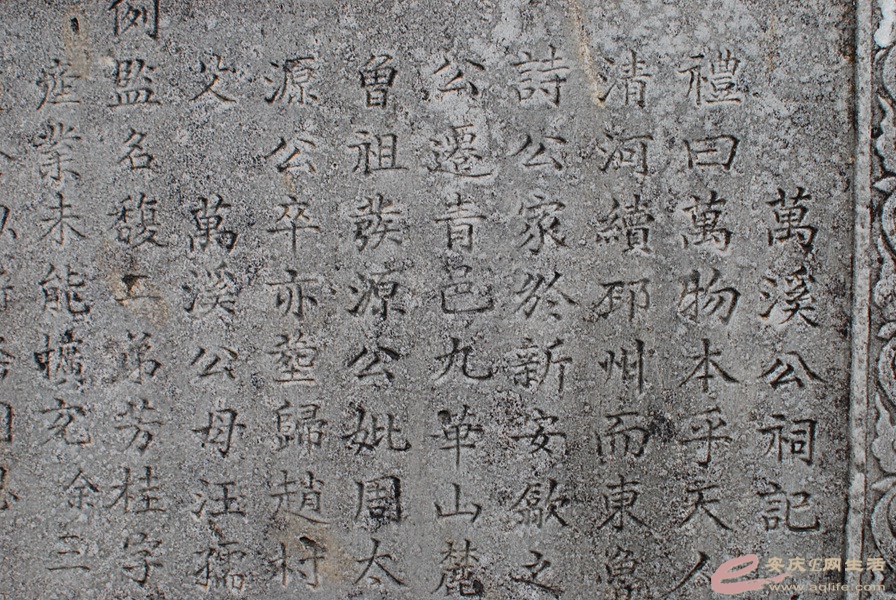 萬溪公祠記
禮曰萬物本乎天人
清河續邳州而東魯
詩公家於新安歙之
公遷青邑九華山麓
曾祖發源公妣周太
源公卒亦塟歸趙村
父萬溪公母汪孺
例監名馥二弟芳桂字
產業未能擴充余三
安庆E网生活
www.aqlife.com